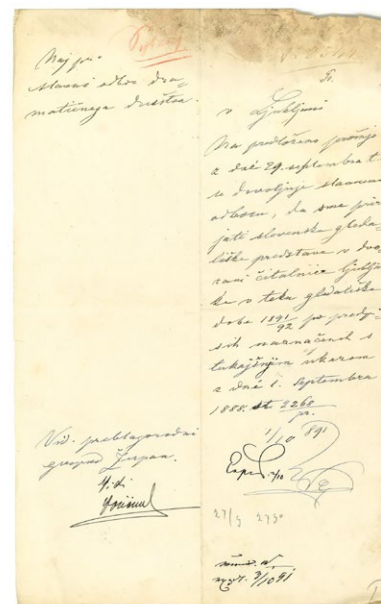 Naj pr.
slavni odbor dra-
matičnega društva.
v Ljubljani
Na predloženo prošnjo
z dné 29. septembra t. l.
se dovoljuje slavnemu
odboru, da sme prire-
jati slovenske gleda-
liške predstave v dvo-
rani čitalnice ljubljan-
ske v teku gledališke
dobe 1891/92 po predpi-
sih naznačenih s
tukajšnjim ukazom
z dné 1. septembra
1888. št. 2268
pr.
1/10 891
Vid. preblagorodni
gospod župan.
Vidi
27/5 2730
3/10 91